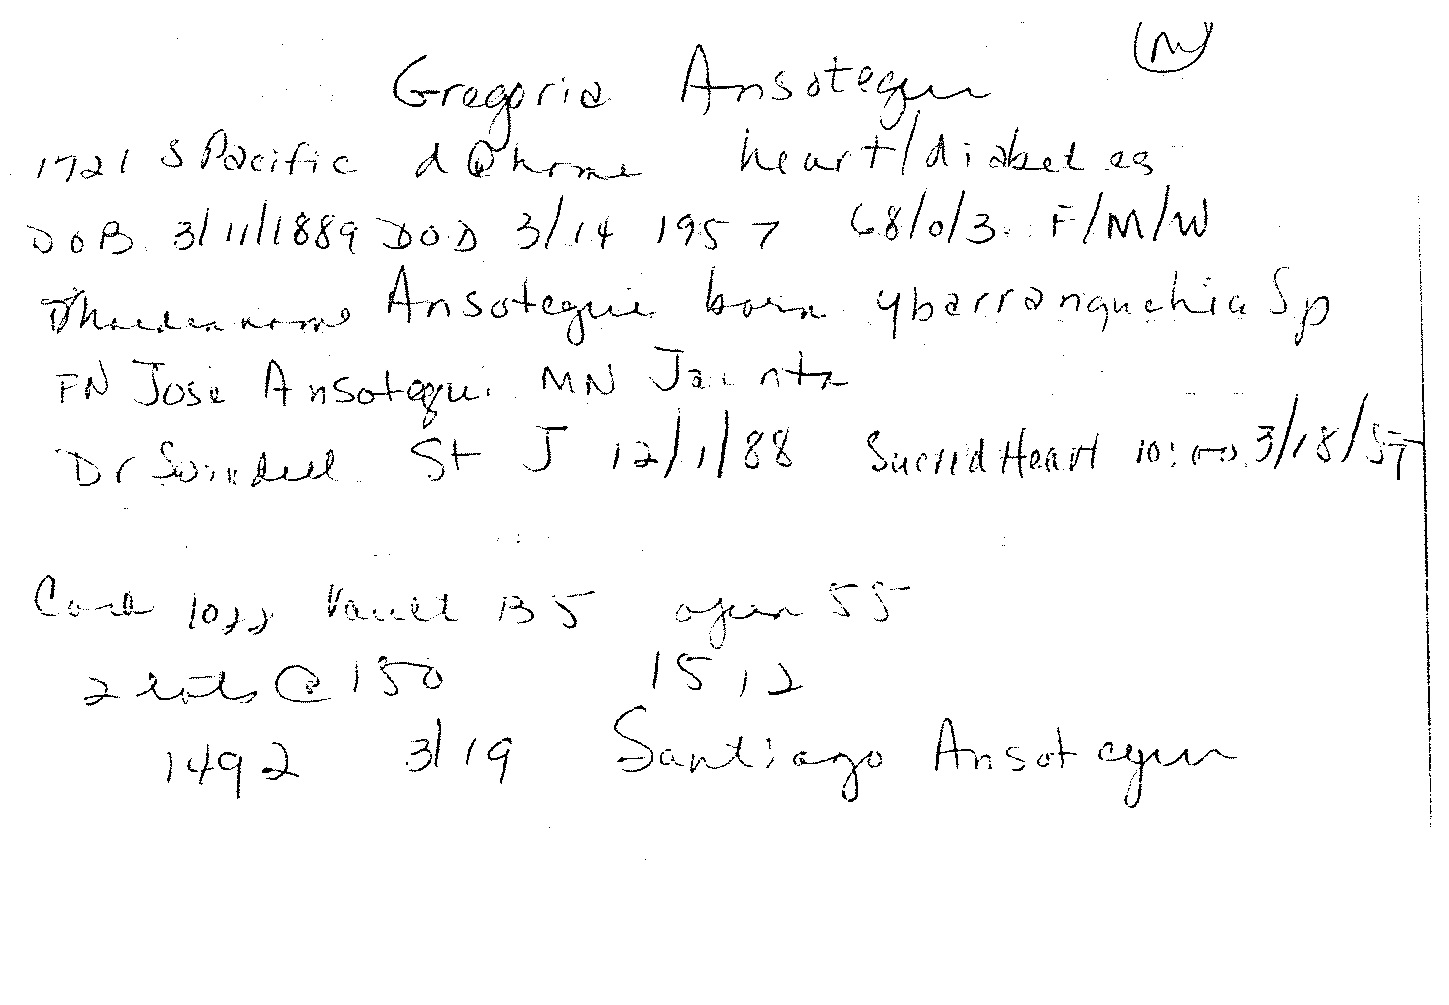 Gregoria Ansotegui
1721 S Pacific d@home heart/diabetes
DOB 3/11/1889 DOD 3/14 1957 68/0/3 F/M/W
Maiden name Ansotegui born ybarranguehia Sp
FN Jose Ansotegui MN Jacinta
Dr Swindell St J 12/1/88 Sacred Heart 10:00 3/18/57
1022 Vault 135 open 55
2 lots @ 150 1512
1492 3/19 Santiago Ansotegui